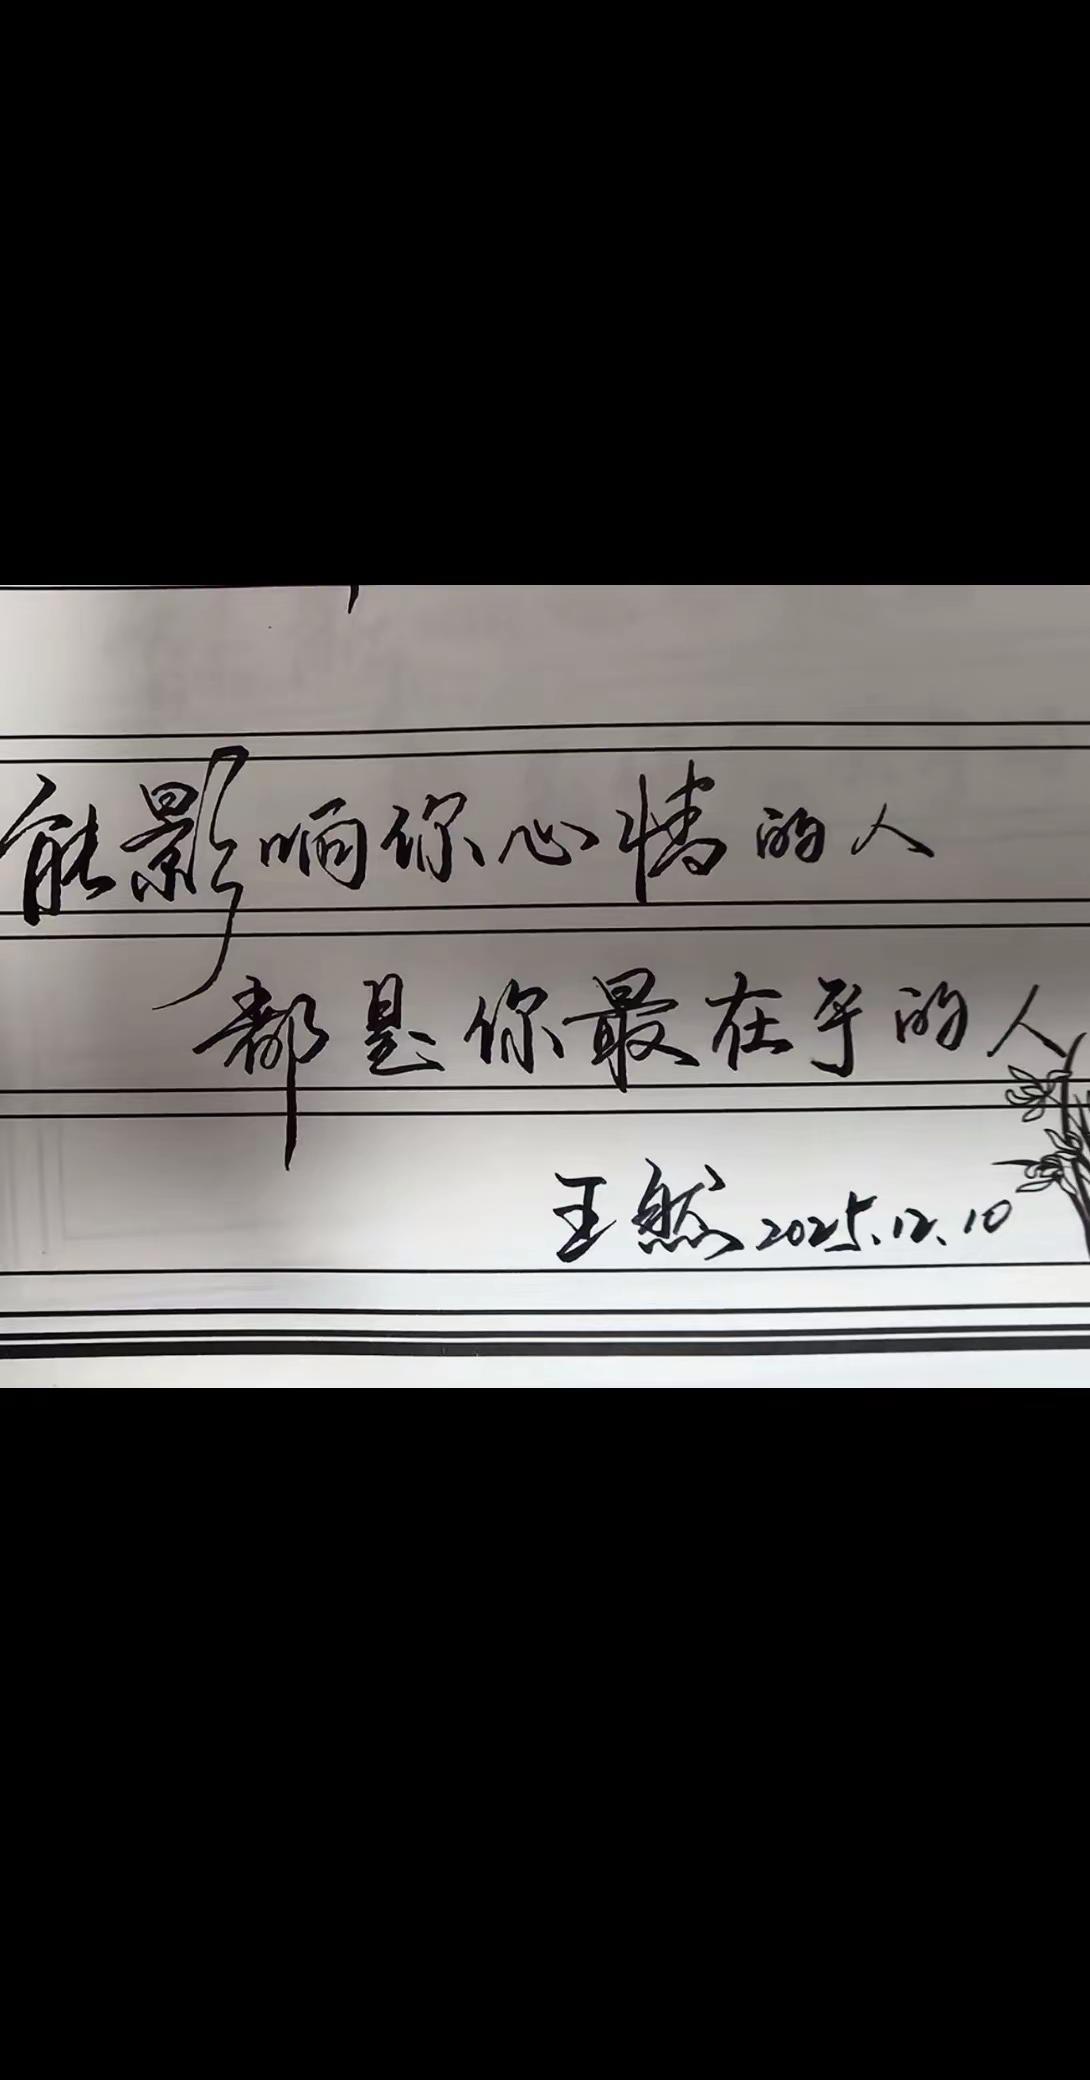 能影响你心情的人
都是你最在乎的人
王然 2025.12.10